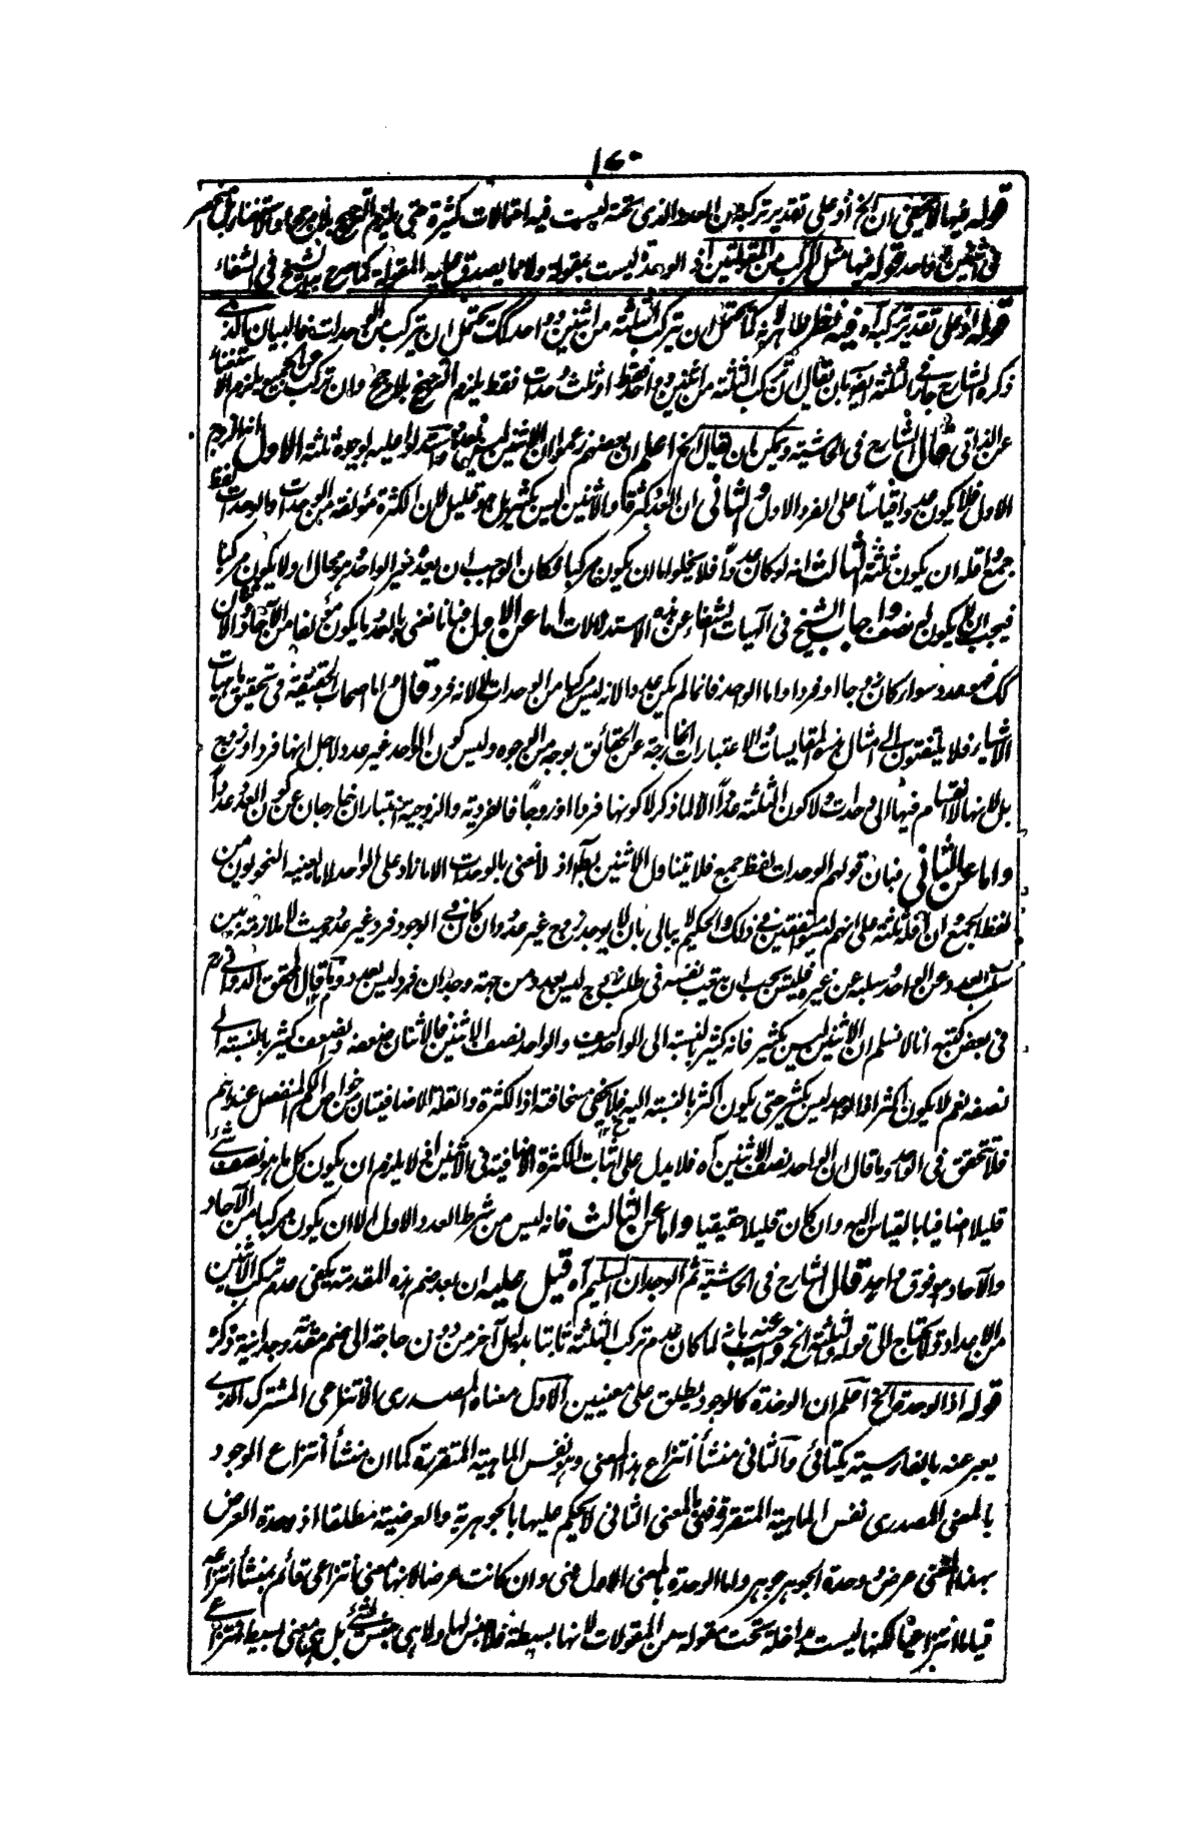 ١٧٠
قوله فيها لا يخفى ان الخ اذ على تقدير تركبه من العدد الذى تحته ليست فيه احتمالات كثيرة حتى يلزم الترجيح بلا مرجح او الاستغناء
فى اثنين واحد قوله فيها مثل المركب من المقولتين اذ الوحدة ليست بمقولة ولا مما يصدق عليه المقولة كما صرح به الشيخ فى الشفاء
قوله اذ على تقدير تركبه آه فيه نظر ظاهر لانه كما يحتمل ان يتركب الثلثة من اثنين وواحد كك يحتمل ان يتركب من الوحدات فالبيان الذى
ذكره الشارح جار فى الثلثة ايضا بان يقال ان تركب الثلثة من اثنين وواحد فقط او ثلث وحدات فقط يلزم الترجيح بلا مرجح وان تركب من الجميع يلزم الاستغناء
عن الذاتى قال الشارح فى الحاشية ويمكن ان يقال الخ اعلم ان بعضهم زعموا ان الاثنين ليس بعدد واستدلوا عليه بوجوه ثلثة الاول انه الزوج
الاول فلا يكون عددا قياسا على الفرد الاول والثانى ان العدد كثرة والاثنين ليس بكثير بل هو قليل لان الكثرة مؤلفة من الوحدات والوحدات لفظ
جمع واقله ان يكون ثلثة الثالث انه لو كان عددا فلا يخلو اما ان يكون مركبا فكان الواجب ان يعده غير الواحد وهو محال ولا يكون مركبا
فيجب ان لا يكون له نصف واجاب الشيخ فى الهيات الشفاء عن هذه الاستدلالات اما عن الاول فبانا نعنى بالعدد ما يكون مؤلفا من الآحاد والاثنان
كك فهو عدد سواء كان زوجا او فردا واما الواحد فانما لم يكن عددا لانه ليس مركبا من الوحدات لا لانه فرد قال واما اصحاب الحقيقة فى تحقيق ماهيات
الاشياء فلا يلتفتون الى امثال هذه المقايسات والاعتبارات الخارجة عن الحقائق بوجه من الوجوه وليس كون الواحد غير عدد لاجل انها فرد او زوج
بل لانها لا انقسام فيها الى وحدات ولا كون الثلثة عددا الا لما ذكر لا كونها فردا او زوجا فالفردية والزوجية اعتباران خارجان عن كون العدد عددا
واما عن الثانى فبان قولهم الوحدات لفظ جمع فلا يتناول الاثنين بط اذ لا نعنى بالوحدات الا ما زاد على الواحد لا ما يعنيه النحويون من
لفظ الجمع ان اقله ثلثة على انهم ليسوا متفقين فى ذلك والحكيم لا يبالى بان لا يوجد زوج غير عدد وان كان فى الوجود فرد غير عدد حيث لا ملازمة بين
سلب العدد عن الواحد وسلبه عن غيره فليس يجب ان يتعب نفسه فى طلب زوج ليس بعدد من جهة وجدان فرد ليس بعدد وما قال المحقق الدوانى رح
فى بعض كتبه انا لا نسلم ان الاثنين ليس بكثير فانه كثير بالنسبة الى الواحد كيف والواحد نصف الاثنين فالاثنان ضعفه والضعف كثير بالنسبة الى
نصفه نعم لا يكون اكثر اذ الواحد ليس بكثير حتى يكون اكثر بالنسبة اليه فلا يخفى سخافته اذ الكثرة والقلة الاضافيتان من خواص الكم المنفصل عندهم
فلا تتحقق فى الواحد وما قال ان الواحد نصف الاثنين آه فلا يدل على اثبات الكثرة الاضافية فى الاثنين اذ لا يلزم ان يكون كل ما هو نصف شئ
قليلا اضافيا بالقياس اليه وان كان قليلا حقيقيا واما عن الثالث فانه ليس من شرط العدد الاول الا ان يكون مركبا من الآحاد
والآحاد موفوق واحد قال الشارح فى الحاشية ثم الوجدان السليم آه قيل عليه ان بعد ضم هذه المقدمة يكفى عدم تركب الاثنين
من الاعداد ولا يحتاج الى قوله والثلثة الخ واجيب عنه بانه لما كان عدم تركب الثلثة ثابتا بدليل آخر من دون حاجة الى ضم مقدمة وجدانية ذكره
قوله اذ الوحدة الخ اعلم ان الوحدة كالوجود يطلق على معنيين الاول معناه المصدرى الانتزاعى المشترك الذى
يعبر عنه بالفارسية يكتائى والثانى منشأ انتزاع هذا المعنى وهو نفس الماهية المتقررة كما ان منشأ انتزاع الوجود
بالمعنى المصدرى نفس الماهية المتقررة فهى بالمعنى الثانى لا يحكم عليها بالجوهرية والعرضية مطلقا اذ وحدة العرض
بهذا المعنى عرض ووحدة الجوهر جوهر واما الوحدة بالمعنى الاول فهى وان كانت عرضا لانها معنى انتزاعى قائم بمنشأ انتزاعه
قياما انتزاعيا لكنها ليست داخلة تحت مقولة من المقولات لانها بسيطة فلا جنس لها ولا هى جنس لشئ بل هى معنى بسيط انتزاعى